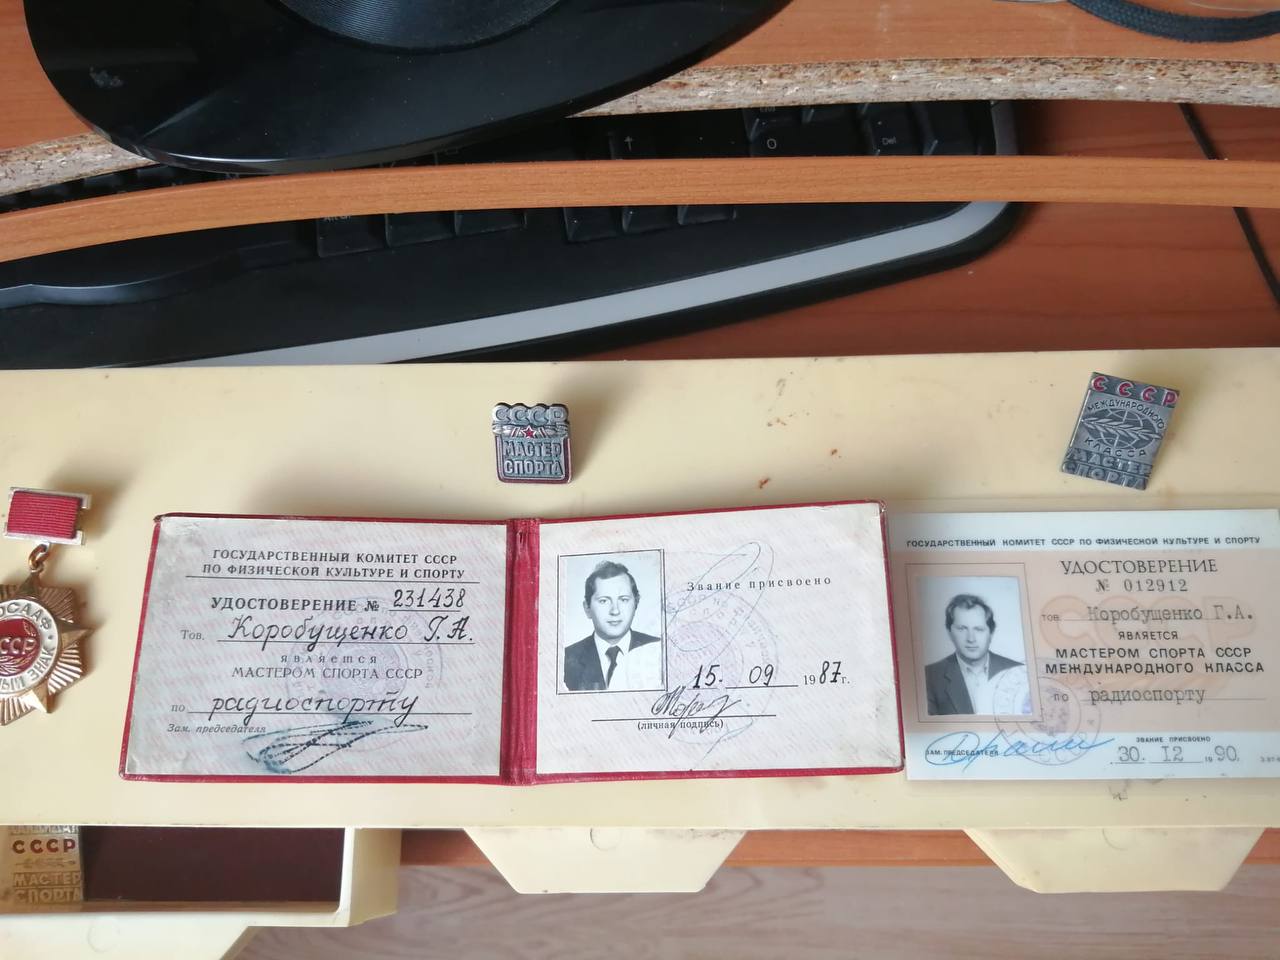 O
Del
СССР
МАСТЕР
СПОРТА
СССР
МЕЖДУНАРОДНОГО
КЛАССА
МАСТЕР
СПОРТА
ОСААФ
СССР
ЗНАК
ГОСУДАРСТВЕННЫЙ КОМИТЕТ СССР
ПО ФИЗИЧЕСКОЙ КУЛЬТУРЕ И СПОРТУ
УДОСТОВЕРЕНИЕ № 231438
Тов. Коробущенко Г.А.
является
МАСТЕРОМ СПОРТА СССР
по радиоспорту
Зам. председателя
Звание присвоено
15. 09 1987г.
(личная подпись)
ГОСУДАРСТВЕННЫЙ КОМИТЕТ СССР ПО ФИЗИЧЕСКОЙ КУЛЬТУРЕ И СПОРТУ
УДОСТОВЕРЕНИЕ
№ 012912
тов. Коробущенко Г.А.
ЯВЛЯЕТСЯ
МАСТЕРОМ СПОРТА СССР
МЕЖДУНАРОДНОГО КЛАССА
по радиоспорту
ЗВАНИЕ ПРИСВОЕНО
ЗАМ. ПРЕДСЕДАТЕЛЯ 30. 12 1990.
СССР
МАСТЕР
СПОРТА